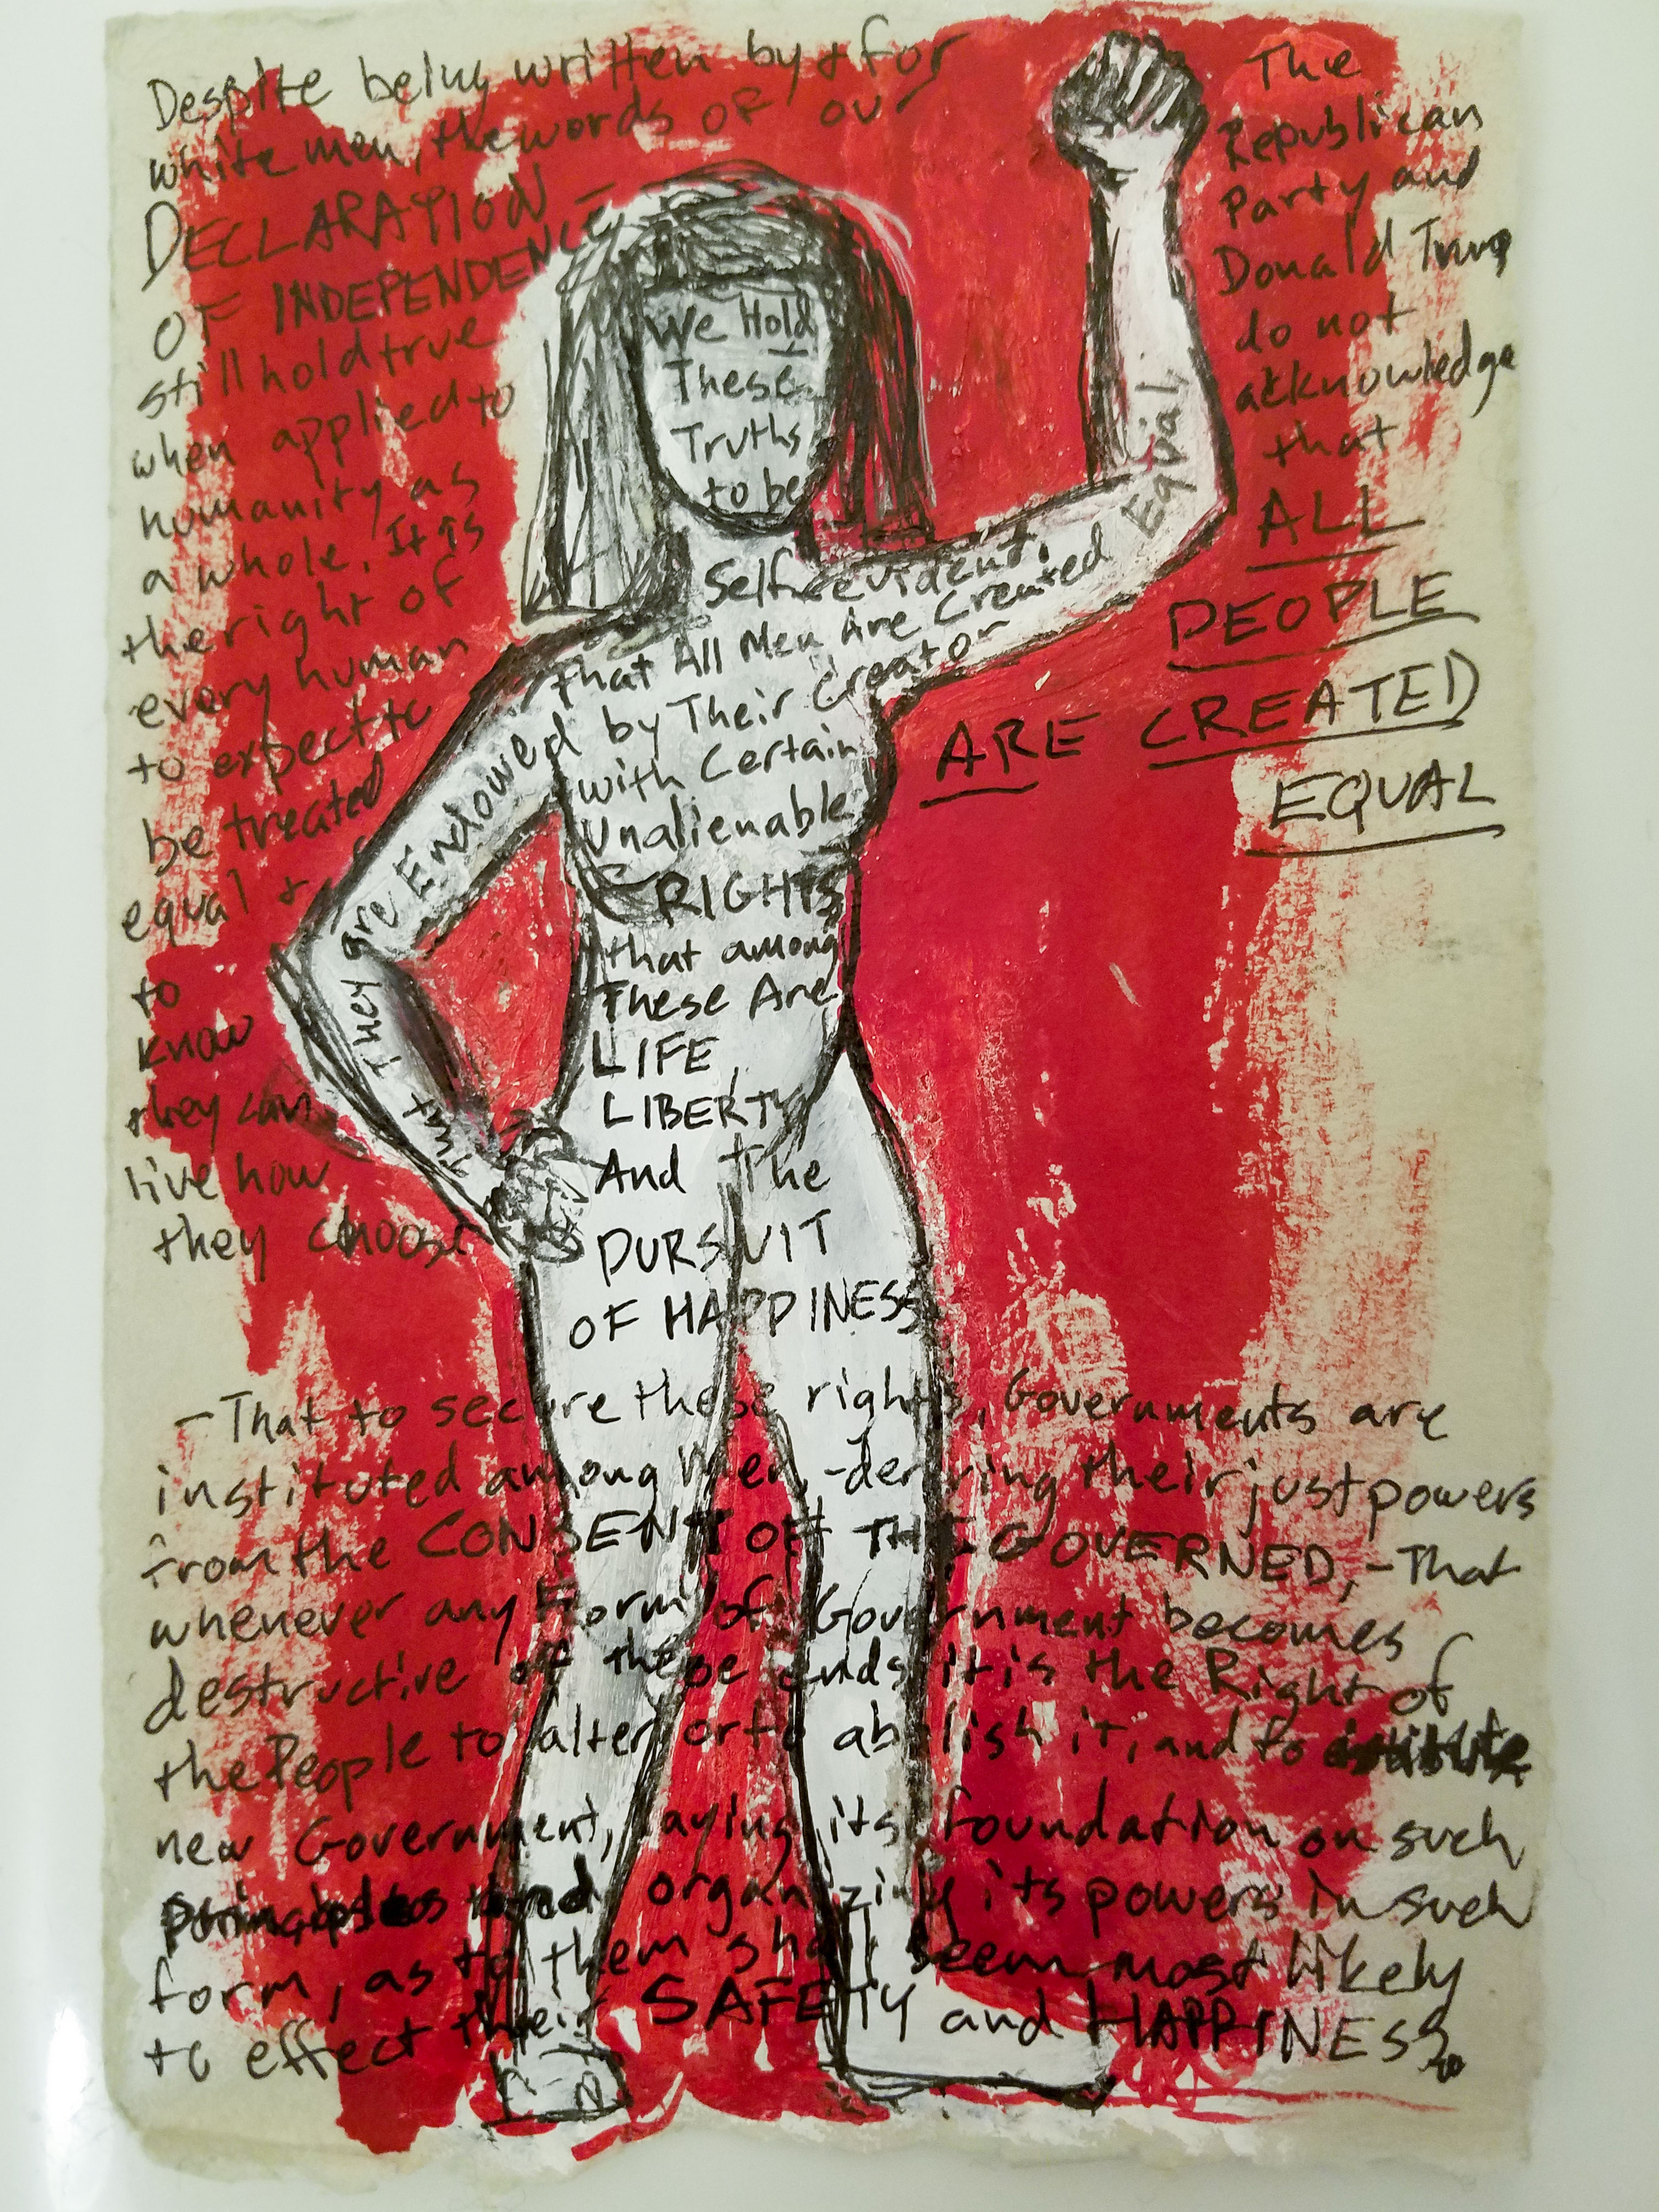 Despite being written by + for
white men, the words of ou
DECLARATION
OF INDEPENDENCE
still hold true
when applied to
humanity as
a whole. It is
the right of
every human
to expect to
be treated
equal +
to
know
they can
live how
they choose
We Hold
These
Truths
to be
Self-evident,
that All Men Are Created
Equal,
That They are Endowed by Their Creator
with Certain
Unalienable
RIGHTS
that among
These Are
LIFE,
LIBERTY
And The
PURSUIT
OF HAPPINESS
The
Republican
Party and
Donald Trump
do not
ackknowledge
that
ALL
PEOPLE
ARE CREATED
EQUAL
- That to secure these rights, Governments are
instituted among Men, - deriving their just powers
from the CONSENT OF THE GOVERNED, - That
whenever any Form of Government becomes
destructive of these ends it is the Right of
the People to alter or to abolish it, and to institute
new Government, laying its foundation on such
principles and organizing its powers in such
form, as to them shall seem most likely
to effect their SAFETY and HAPPINESS.